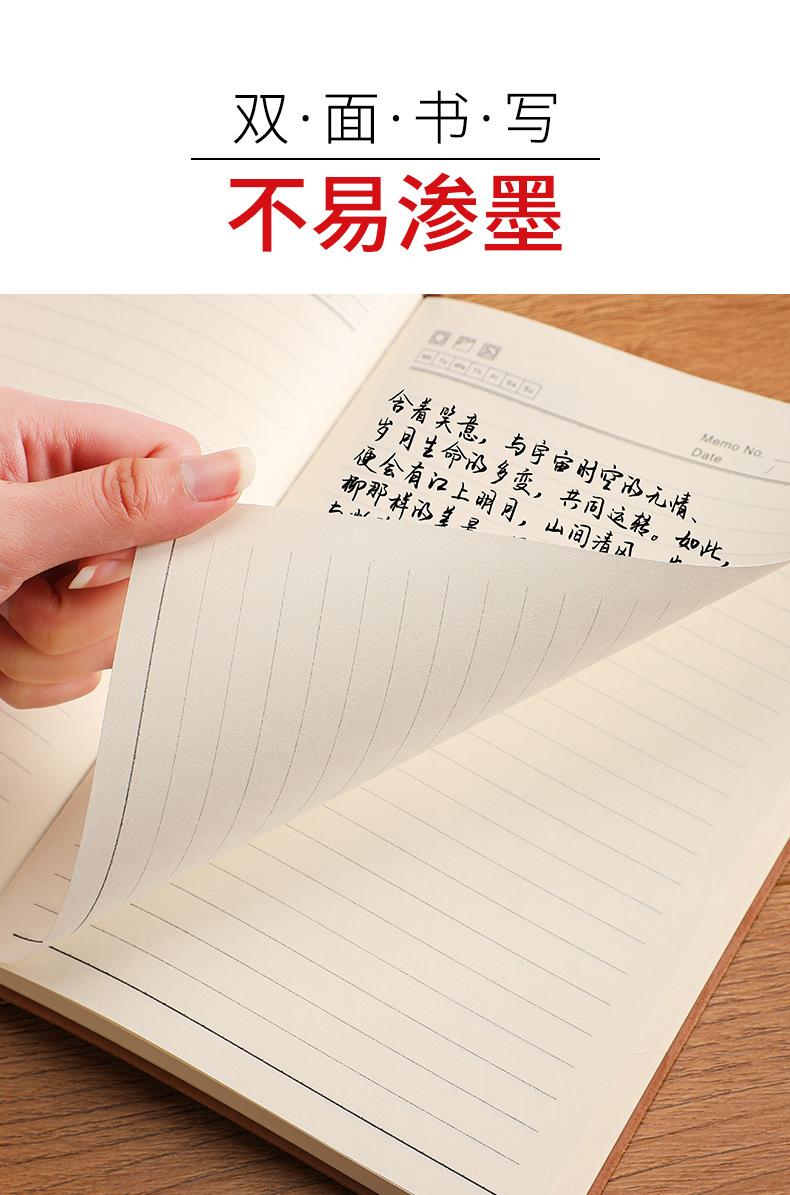 双·面·书·写
不易渗墨
Mo Tu We Th Fr Sa Su
Memo No.
Date /
含着笑意，与宇宙时空的无情、
岁月生命的多变，共同运转。如此，
便会有江上明月，山间清风
柳那样的美景